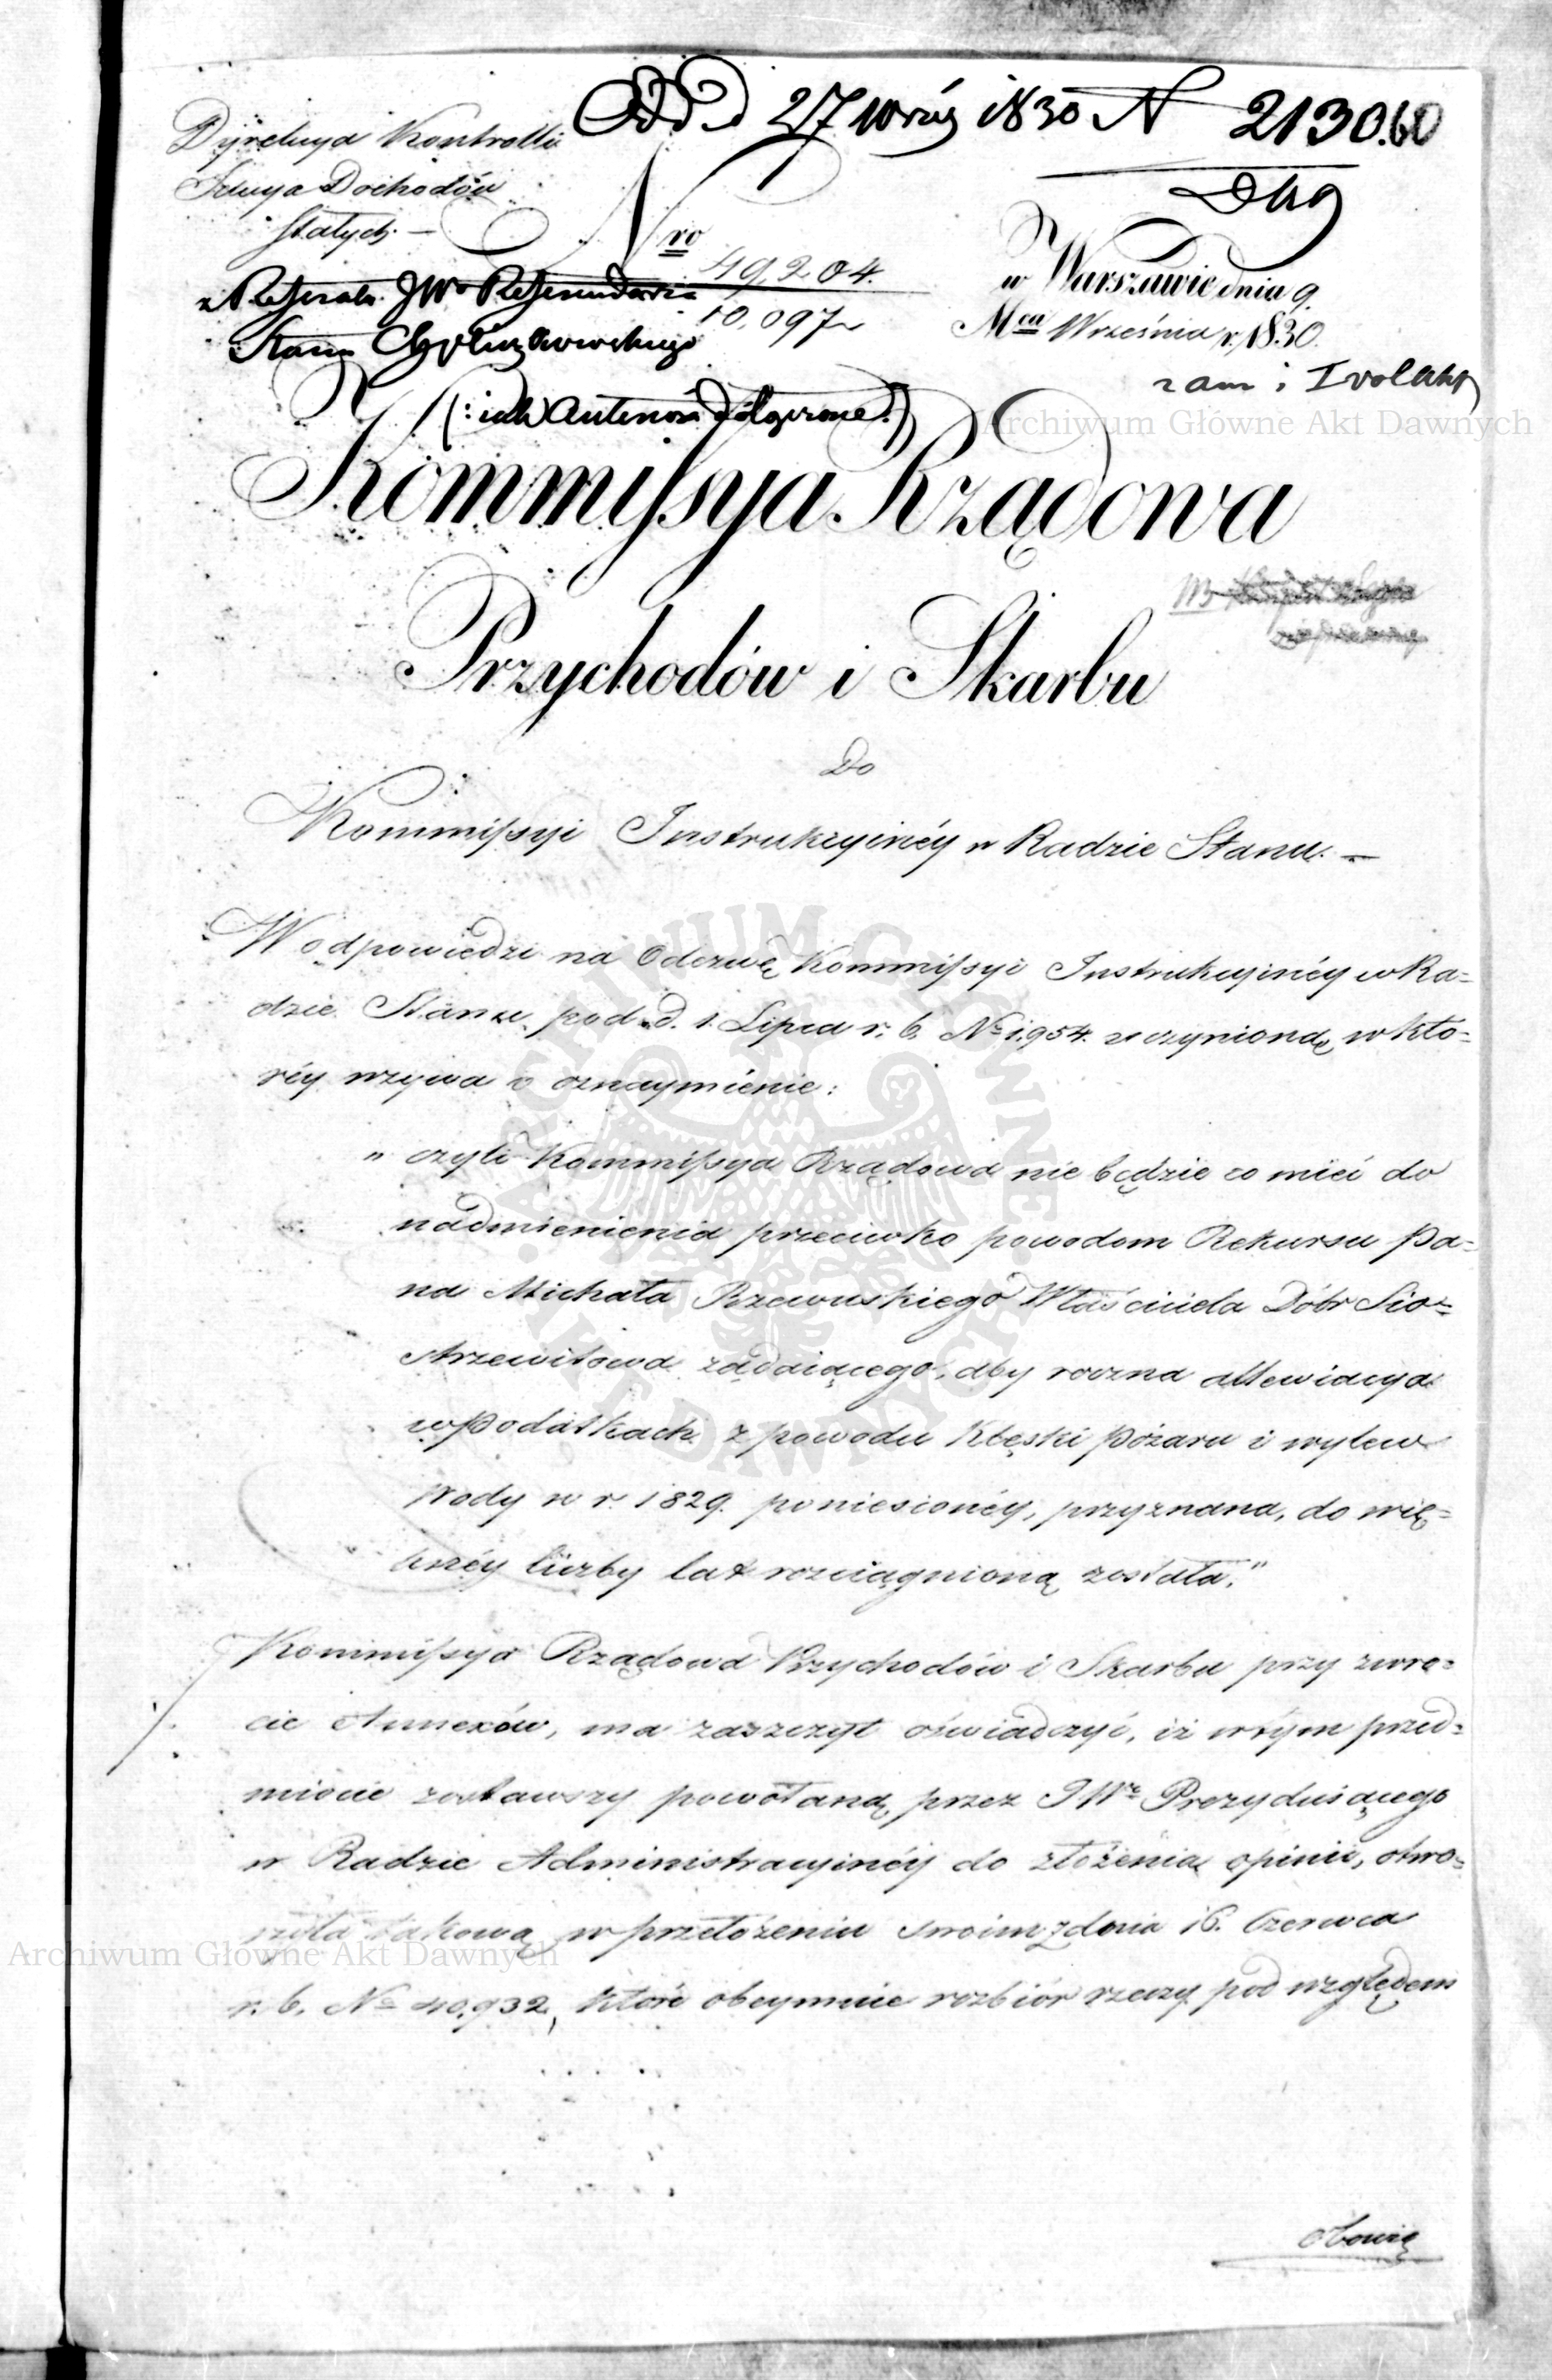 Odd d 27 wrześ 1830 N 2130.60
Dyrekcya Kontrolli
Sekcya Dochodów
Stałych. —
Nro 49,204.
10,097
w Warszawie dnia 9.
Mca Września r. 1830.
z Referatu JW. Referendarza
Stanu
Archiwum Główne Akt Dawnych
Kommissya Rządowa
Przychodów i Skarbu
Do
Kommissyi Instrukcyinéy w Radzie Stanu. —
W odpowiedzi na Odezwę Kommissyi Instrukcyinéy w Ra=
dzie Stanu pod d. 1. Lipca r. b. No 1,954. uczynioną, w któ=
réy wzywa o oznaymienie:
„ czyli Kommissya Rządowa nie będzie co mieć do
nadmienienia przeciwko powodom Rekursu Pa=
na Michała Rzewuskiego Właściciela Dóbr Sio=
strzewitowa żądaiącego, aby roczna allewiacya
w podatkach z powodu klęski pożaru i wylew
wody w r. 1829. poniesionéy, przyznana, do wię=
kszéy liczby lat rozciągnioną została."
Kommissya Rządowa Przychodów i Skarbu przy zwro=
cie Annexów, ma zaszczyt oświadczyć, iż w tym przed=
miocie zostawszy powołaną przez JWo Prezyduiącego
w Radzie Administracyinéy do złożenia opinii, otwo=
rzyła takową w przełożeniu swoim z dnia 16. Czerwca
r. b. No 40,932, które obeymuie rozbiór rzeczy pod względem
Archiwum Główne Akt Dawnych
obowią
ARCHIWUM GŁÓWNE AKT DAWNYCH